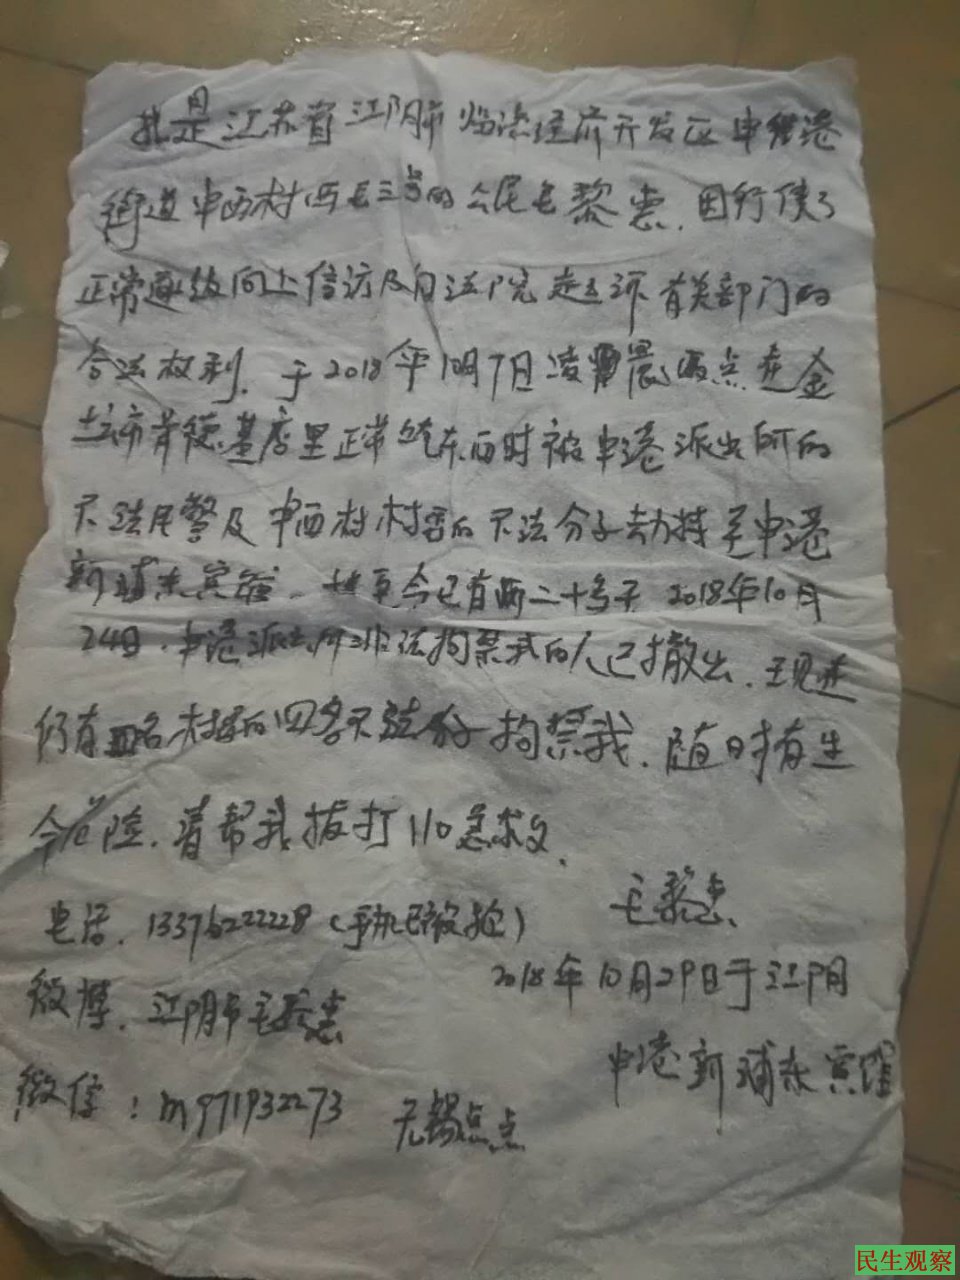 我是江苏省江阴市临港经济开发区申港
街道申西村西毛三号的公民毛黎惠，因行使了
正常逐级向上信访及向法院起诉有关部门的
合法权利，于2018年10月7日凌晨两点在金
坛市肯德基店里正常吃东西时被申港派出所的
不法民警及申西村村委的不法分子劫持至申港
新浦东宾馆，至今已有二十多天 2018年10月
24日，申港派出所非法拘禁我的人已撤出，现
仍有村委的四名不法分子拘禁我，随时有生
命危险，请帮我拔打110急救。
毛黎惠
电话，13376222228（手机已被抢）
2018年10月29日于江阴
微博，江阴市毛黎惠
申港新浦东宾馆
微信：m971932273 无锡点点
民生观察